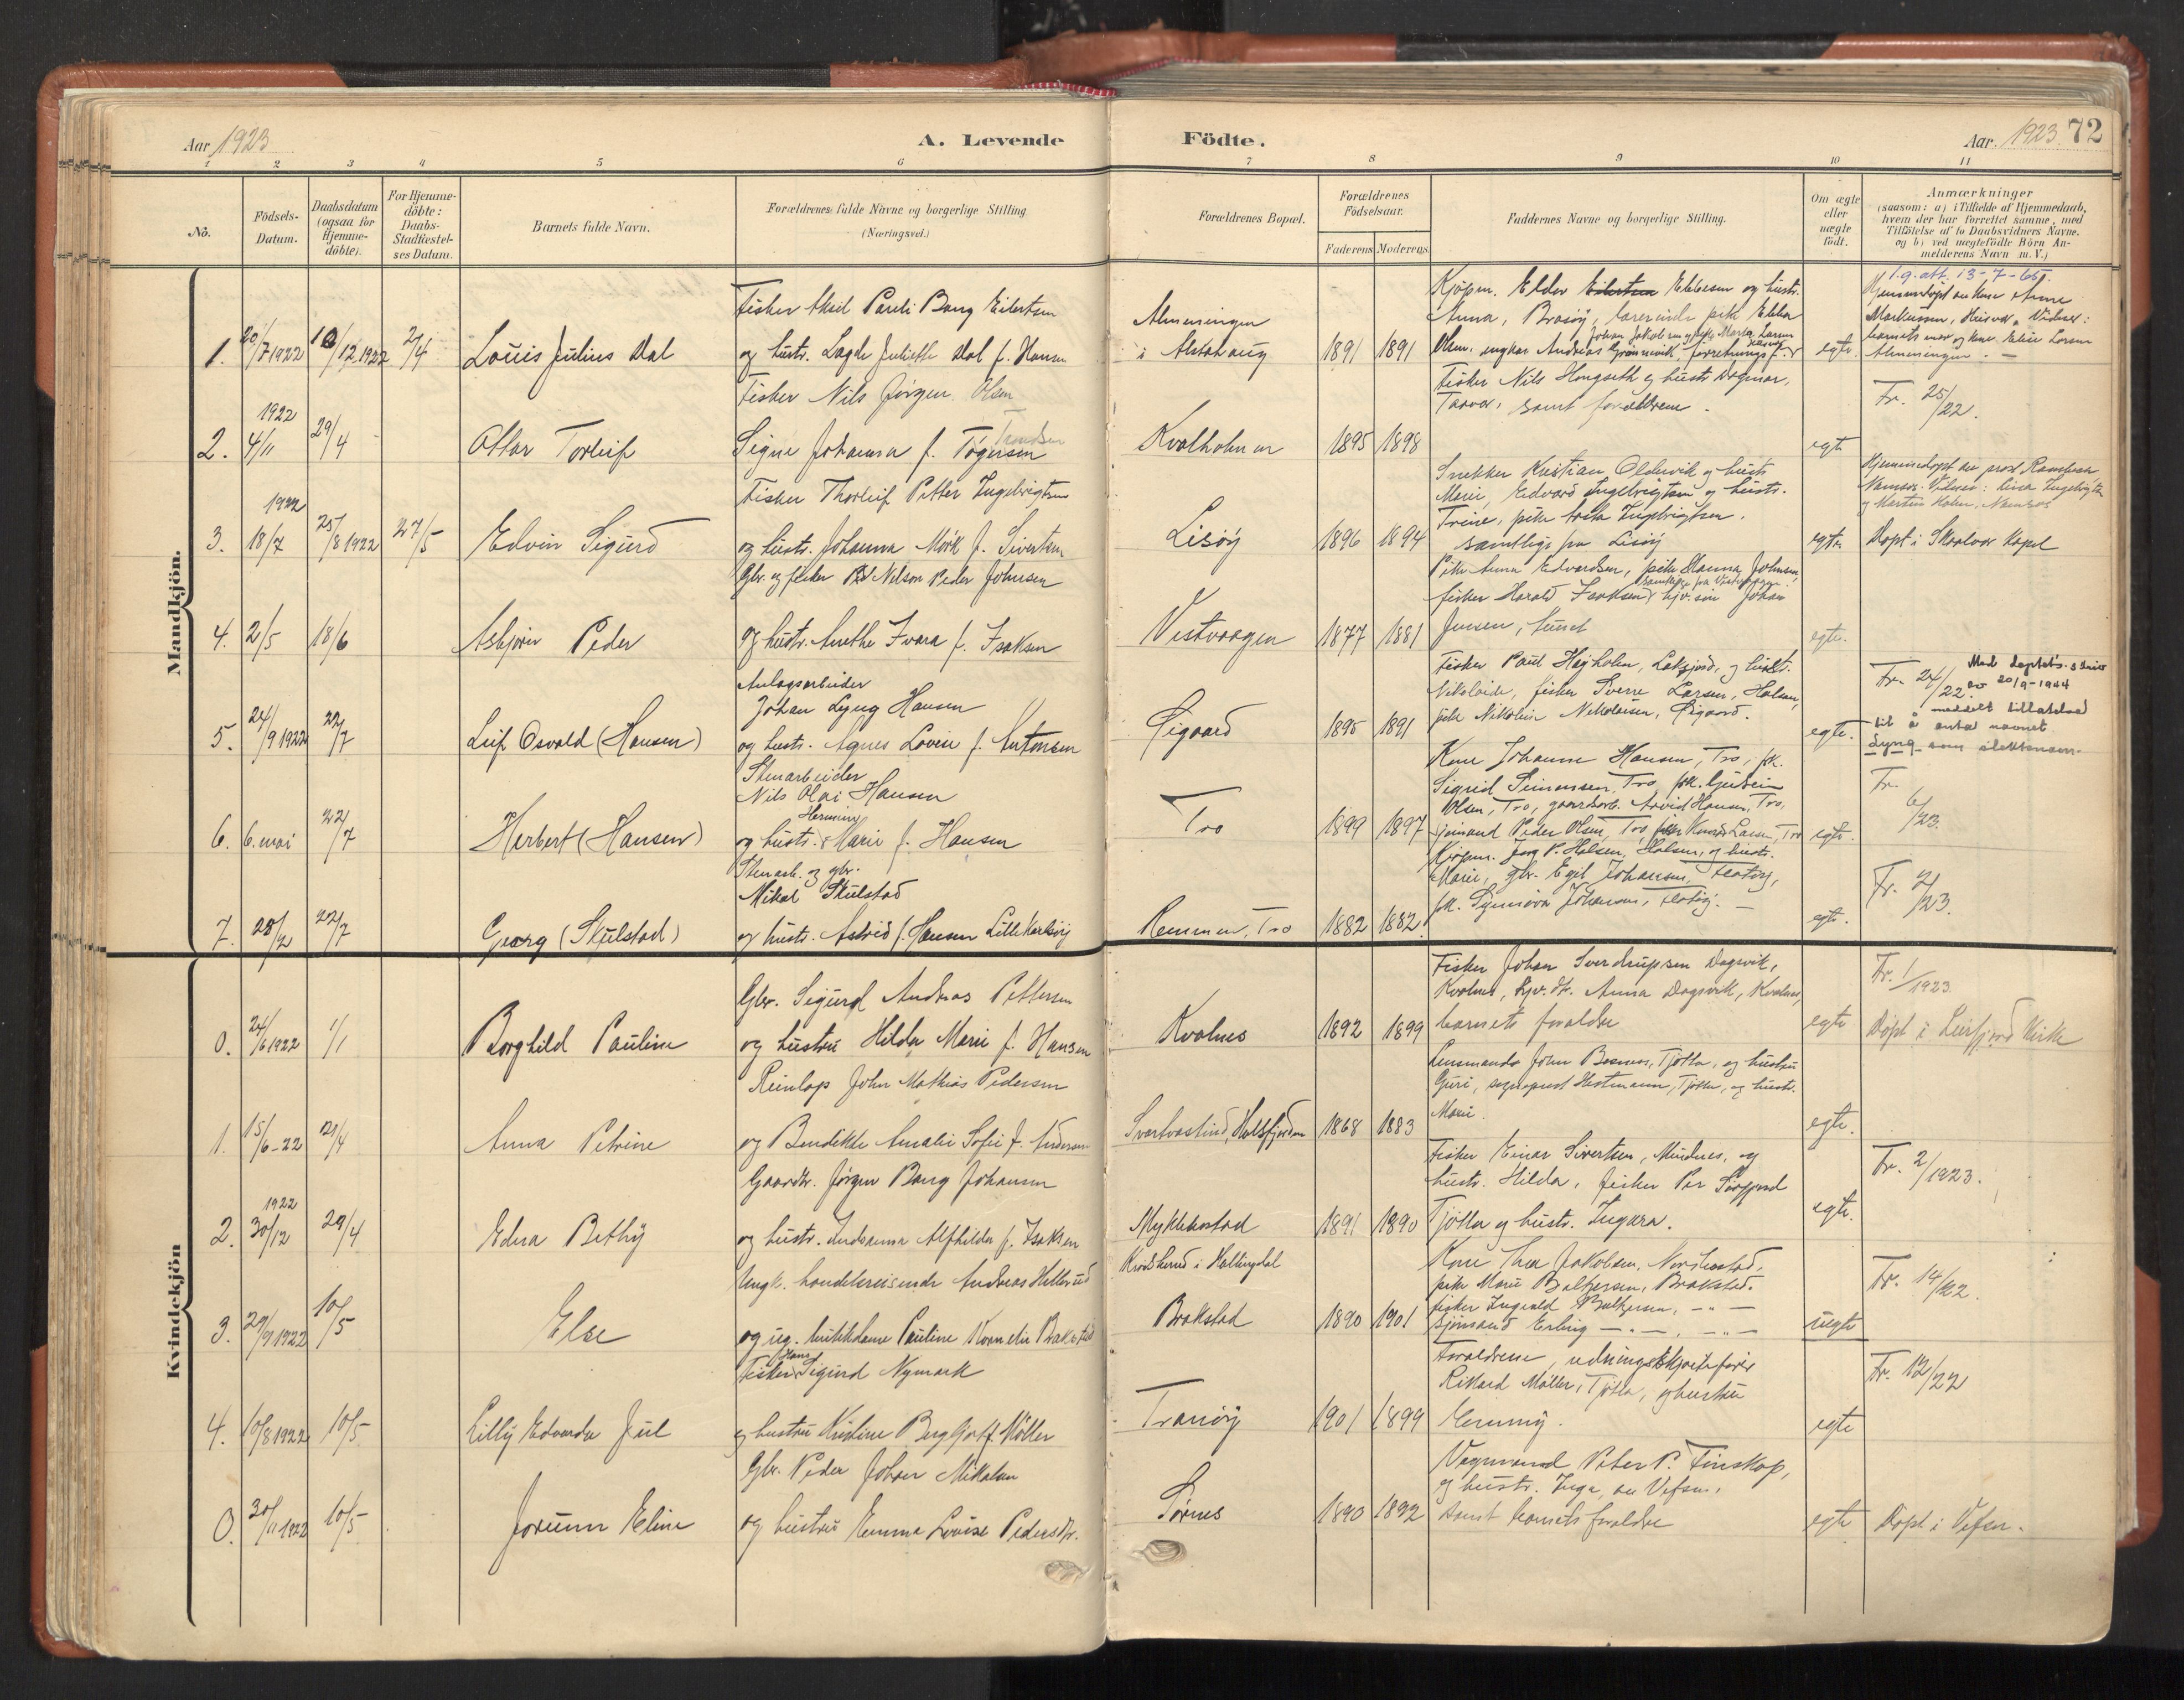 Aar 1923
A. Levende
Födte.
Aar. 1923. 72
1 2 3 4 5 6 7 8 9 10 11
No.
Födsels-
Datum.
Daabsdatum
(ogsaa for
Hjemme-
döbte).
For Hjemme-
döbte:
Daabs-
Stadfæstel-
ses Datum.
Barnets fulde Navn.
Forældrenes fulde Navne og borgerlige Stilling
(Næringsvei.)
Forældrenes Bopæl.
Forældrenes
Födselsaar.
Faderens Moderens
Faddernes Navne og borgerlige Stilling.
Om ægte
eller
uægte
födt.
Anmærkninger
(saasom: a) i Tilfælde af Hjemmedaab,
hvem der har forrettet samme, med
Tilföielse af to Daabsvidners Navne.
og b) ved uægtefödte Börn An-
melderens Navn m. V.)
Mandkjön.
1. 20/7 1922 10/12 1922 2/4
Louis Julius Dal
Fisker Aksel Pareli Bang Eilertsen
og hustr. Lagle Juliette Dal f. Hansen
Almeningen
i Alstahaug
1891 1891
Kjøpm. Elder Ebbesen og hustr.
Anna, Brasøy, lærerinde pik Ebba
Johan Jakobsen og pik Marta Larsen
Olsen, ungkar Andreas Grønnevik, forretningsf.
Fisker Nils Hongseth og hustr. Dagmar,
Tarvær, samt forældrene.
egte
1.g. att. 13-7-65.
Hjemmedøpt av kone Anne
Markussen, Husvær. Vidner:
barnets mor og kone Elise Larsen
Almeningen. —
2. 1922 4/11 29/4
Ottar Torleif
Fisker Nils Jørgen Olsen
Signe Johanna f. Tøgersen
Kvalholmen
1895 1898
egte
Fr. 25/22.
3. 1922 18/7 25/8 1922 27/5
Edvin Sigurd
Fisker Thorleif Petter Ingebrigtsen
og hustr. Johanna Mørk f. Sivertsen
Lisøy
1896 1894
Snekker Kristian Oldervik og hustr.
Marie, Edvard Ingebrigtsen og hustr.
Trine, pike Ingebrigtsen.
samtlige fra Lisøy
egte
Hjemmedøpt av prost
Namsos. Vidner: Lina Ingebrigtsen
og Martin Holm, Namsos
Døpt i Skaalvær Kapel
4. 2/5 18/6
Asbjørn Peder
Gbr. og fisker Nilson Peder Johnsen
og hustr. Anethe Ivara f. Isaksen
Vestvaagen
1877 1881
Pike Anna Edvardsen, pike Hanna Johnsen
samtlige fra Vestvaagen.
fisker Harald Isaksen, hjv. søn Johan
Jensen, Sund
egte.
5. 24/9 1922 22/7
Leif Osvald (Hansen)
Anlegsarbeider
Johan Lyng Hansen
og hustr. Agnes Lovise f. Antonsen
Øigaard
1895 1891
Fisker Paul Højholm, Leksfjord, og hustr.
Nikolaide, fisker Sverre Larsen, Holsen,
pike Nikoline Nikolaisen, Øigaard.
egte.
Fr. 24/22.
Med deptets. skriv
av 20/9-1944
meddelt tillatelse
til å anta navnet
Lyng som slektsnavn.
6. 6. mai 22/7
Herbert (Hansen)
Stenarbeider
Nils Olai Hansen
Hermine
og hustr. Marie f. Hansen
Tro
1899 1897
Kone Johanne Hansen, Tro, pk.
Sigrid Simonsen, Tro, pk. Gjudrun
Olsen, Tro, gaardarb. Arvid Hansen, Tro,
sjømand Peder Olsen, Tro, fisker Konrad Larsen, Tro
egte.
Fr. 6/23.
7. 28/2 22/7
Georg (Skulstad)
Stenarb. og gbr.
Mikal Skulstad
og hustr. Astrid f. Hansen Lille Karlsøy
Remmen, Tro
1882 1882
Kjøpm. Jorg P. Holsen, Holsen, og hustr.
Marie, gbr. Egil Johansen, Flatøy,
pk. Synnøva Johansen, Flatøy. —
egte.
Fr. 7/23.
Kvindekjön
0. 24/6 1922 1/1
Borghild Pauline
Gbr. Sigurd Andreas Pettersen
og hustru Hilda Marie f. Hansen
Kvalnes
1892 1899
Fisker Johan Sverdrupsen Dagsvik,
Kvalnes, hjv. dtr. Anna Dagsvik, Kvalnes,
barnets forældre
egte
Fr. 1/1923
Døpt i Leirfjord Kirke
1. 15/6-22 2/4
Anna Petrine
Reinlap John Mathias Pedersen
og Bendikte Amalie Sofie f. Andersen
Svartvastind, Halsfjorden
1868 1883
Lensmand John Bosmo, Tjøtta, og hustru
Guri, sogneprest Hestmann, Tjøtta, og hustr.
Marie.
egte.
2. 1922 30/12 29/4
Edna Bethy
Gaardbr. Jørgen Bang Johansen
og hustr. Indianna Alfhilda f. Isaksen
Myklebostad
1891 1890
Fisker Einar Sivertsen, Mindnes, og
hustr. Hilda, fisker Per Sørfjord
Tjøtta og hustr. Ingara.
egte.
Fr. 2/1923.
3. 29/9 1922 10/5
Else
Ungk. handelsreisende Andreas Hellerud
og ug. butikdame Pauline Kornelie Brakstad
Krødsherad i Hallingdal
Brakstad
1890 1901
Kone Thea Jakobsen, Nordbostad,
pike Marie Baltzersen, Brakstad.
fisker Ingvald Baltzersen, — " —
sjømand Erling — " — , — " —
uegte
Fr. 14/22.
4. 10/8 1922 10/5
Lilly Edvarda Jul
Hans
Fisker Sigurd Nymark
og hustru Kristine Bergljot f. Møller
Tranøy
1901 1899
Forældrene, redningsskøitefører
Rikard Møller, Tjøtta, og hustru
Emmy.
egte
Fr. 12/22
0. 30/11 1922 10/5
Jorunn Eline
Gbr. Peder Johan Mikalsen
og hustru Emma Lovise Pedersdtr.
Sørnes
1890 1892
Vognmand Peter P. Finskog,
og hustr. Inga, av Vefsn,
samt barnets forældre
egte
Døpt i Vefsn.